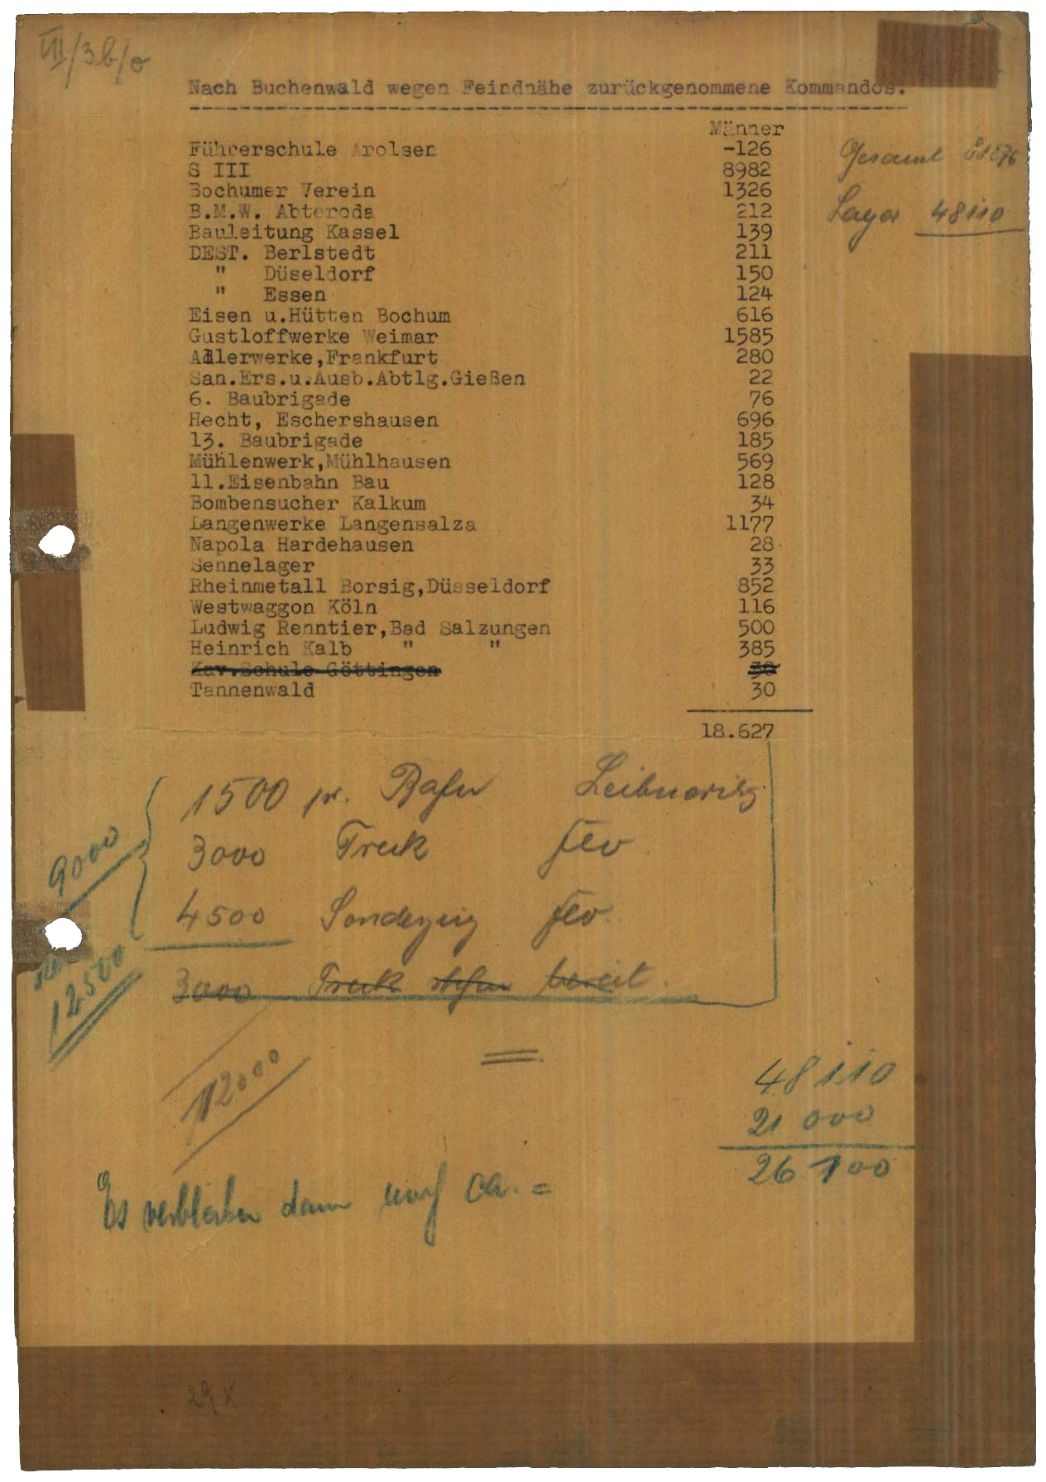 VII/3b/o
Nach Buchenwald wegen Feindnähe zurückgenommene Kommandos.
Männer
Führerschule Arolsen -126
S III 8982
Bochumer Verein 1326
B.M.W. Abteroda 212
Bauleitung Kassel 139
DEST. Berlstedt 211
" Düseldorf 150
" Essen 124
Eisen u.Hütten Bochum 616
Gustloffwerke Weimar 1585
Adlerwerke,Frankfurt 280
San.Ers.u.Ausb.Abtlg.Gießen 22
6. Baubrigade 76
Hecht, Eschershausen 696
13. Baubrigade 185
Mühlenwerk,Mühlhausen 569
11.Eisenbahn Bau 128
Bombensucher Kalkum 34
Langenwerke Langensalza 1177
Napola Hardehausen 28
Sennelager 33
Rheinmetall Borsig,Düsseldorf 852
Westwaggon Köln 116
Ludwig Renntier,Bad Salzungen 500
Heinrich Kalb " " 385
Kav.Schule Göttingen 38
Tannenwald 30
18.627
Gesamt
Lager 48110
1500 pr. Bahn
3000 Treck
4500 Sonderzug
3000 Treck stehen bereit.
9000
12500
12000
48110
21 000
26 100
Es verbleiben dann noch ca. =
29